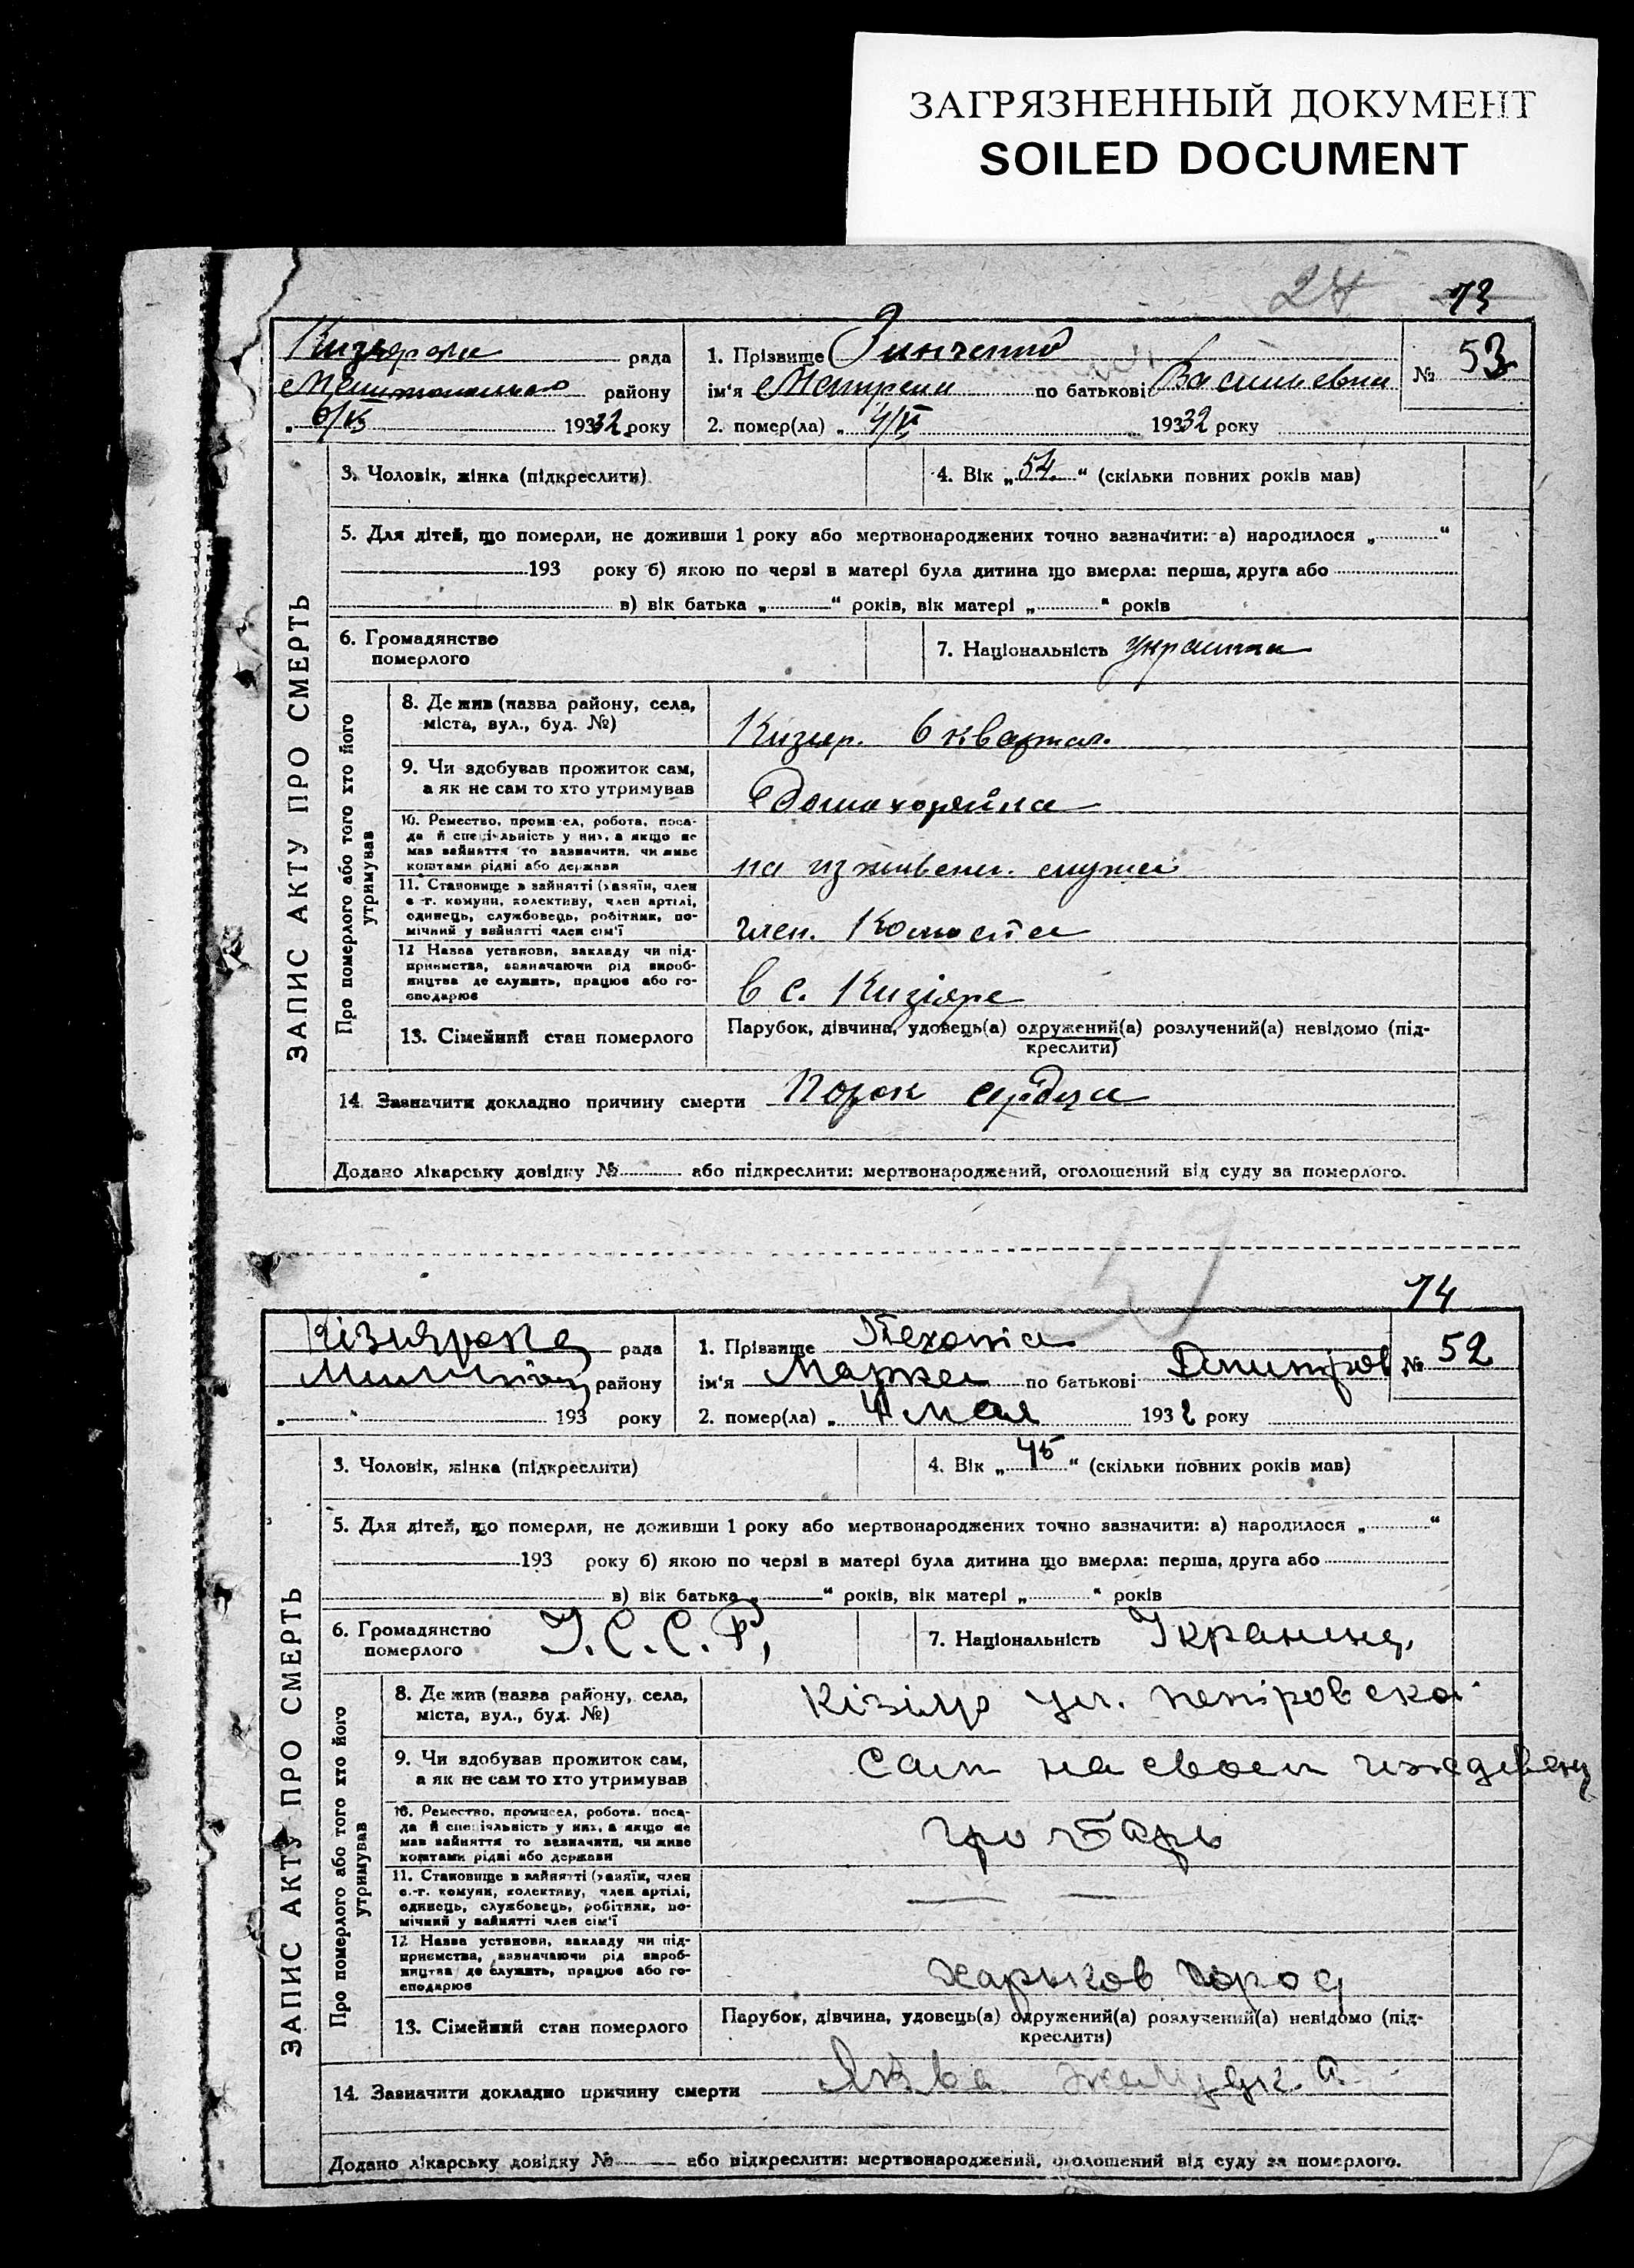 ЗАГРЯЗНЕННЫЙ ДОКУМЕНТ
SOILED DOCUMENT
24 73
рада 1. Прізвище Зинченко № 53
району ім'я по батькові Васильевна
6/V 1932 року 2. помер(ла) „ 4/V 1932 року
ЗАПИС АКТУ ПРО СМЕРТЬ
3. Чоловік, жінка (підкреслити) 4. Вік „54“ (скільки повних років мав)
5. Для дітей, що померли, не доживши 1 року або мертвонароджених точно зазначити: а) народилося „ “
193 року б) якою по черзі в матері була дитина що вмерла: перша, друга або
в) вік батька „ “ років, вік матері „ “ років
6. Громадянство 7. Національність украинка
померлого
Про померлого або того хто його утримував
8. Де жив (назва району, села,
міста, вул., буд. №) Кизіяр. 6 квартал.
9. Чи здобував прожиток сам,
а як не сам то хто утримував Домахозяйка
10. Ремество, промисел, робота, поса-
да й спеціяльність у них, а якщо не
мав зайняття то зазначити, чи живе
коштами рідні або держави на мужа
11. Становище в зайнятті (хазяїн, член
с.-г. комуни, колективу, член артілі,
одинець, службовець, робітник, по-
мічний у зайнятті член сім'ї член.
12 Назва установи, закладу чи під-
приємства, зазначаючи рід вироб-
ництва де служить, працює або го-
сподарює в с. Кизіяре
13. Сімейний стан померлого Парубок, дівчина, удовець(а) одружений(а) розлучений(а) невідомо (під-
креслити)
14. Зазначити докладно причину смерти Порок сердца
Додано лікарську довідку № або підкреслити: мертвонароджений, оголошений від суду за померлого.
74
рада 1. Прізвище № 52
району ім'я по батькові Дмитров
„ 193 року 2. помер(ла) „ 4 мая 1932 року
ЗАПИС АКТУ ПРО СМЕРТЬ
3. Чоловік, жінка (підкреслити) 4. Вік „45“ (скільки повних років мав)
5. Для дітей, що померли, не доживши 1 року або мертвонароджених точно зазначити: а) народилося „ “
193 року б) якою по черзі в матері була дитина що вмерла: перша, друга або
в) вік батька „ “ років, вік матері „ “ років
6. Громадянство У.С.С.Р, 7. Національність Украинец
померлого
Про померлого або того хто його утримував
8. Де жив (назва району, села,
міста, вул., буд. №) Кізіяр ул. петровска
9. Чи здобував прожиток сам,
а як не сам то хто утримував Сам на своем
10. Ремество, промисел, робота, поса-
да й спеціяльність у них, а якщо не
мав зайняття то зазначити, чи живе
коштами рідні або держави
11. Становище в зайнятті (хазяїн, член
с.-г. комуни, колективу, член артілі,
одинець, службовець, робітник, по-
мічний у зайнятті член сім'ї
12 Назва установи, закладу чи під-
приємства, зазначаючи рід вироб-
ництва де служить, працює або го-
сподарює харьков город
13. Сімейний стан померлого Парубок, дівчина, удовець(а) одружений(а) розлучений(а) невідомо (під-
креслити)
14. Зазначити докладно причину смерти Язва
Додано лікарську довідку № або підкреслити: мертвонароджений, оголошений від суду за померлого.